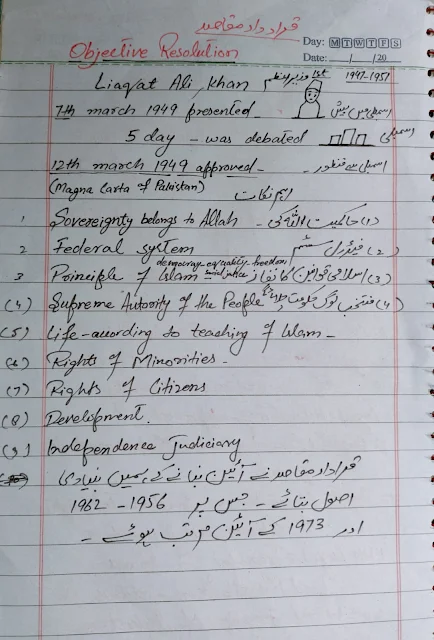 قرار داد مقاصد
Objective Resolution
Day: M T W T F S
Date: / /20
Liaqat Ali Khan 1st وزیراعظم 1947-1951
7th march 1949 presented - اسمبلی میں پیش
5 day - was debated اسمبلی
12th march 1949 approved - اسمبلی سے منظور -
(Magna Carta of Pakistan) اہم نکات
1 Sovereignty belongs to Allah - (1) حاکمیت اللہ کی
2 Federal system (2) فیڈرل سسٹم
democracy-equality-freedom
3 Principle of Islam social justice (3) اسلامی قوانین کا نفاذ
(4) Supreme Autority of the People (4) منتخب لوگ حکومت
(5) Life-auording to teaching of Islam -
(6) Rights of Minorities -
(7) Rights of Citizens
(8) Development.
(9) Independence Judiciary
قرار داد مقاصد نے آئین بنانے کے ہمیں بنیادی
اصول بتائے - جس پر 1956 - 1962
اور 1973 کے آئین مرتب ہوئے -